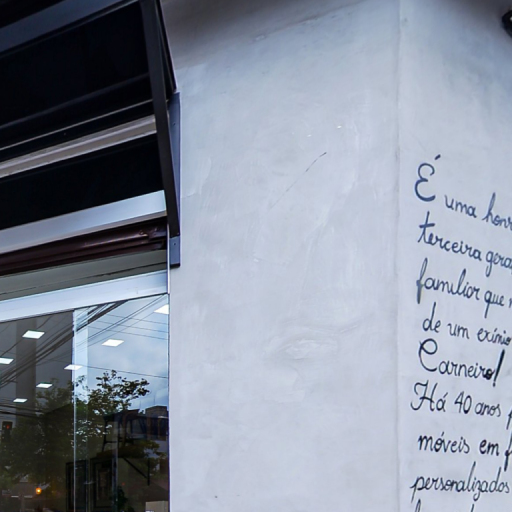 É uma honr
terceira gera
familiar que
de um exímio
Carneiro!
Há 40 anos
móveis em
personalizados